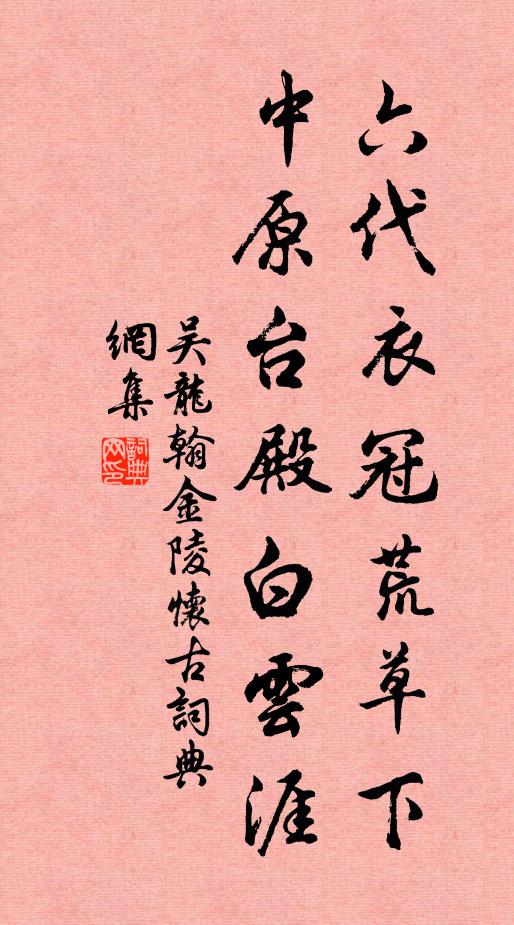 六代衣冠荒草下
中原台殿白雲涯
吴龍翰金陵懷古詞典
網集
詞典
网印